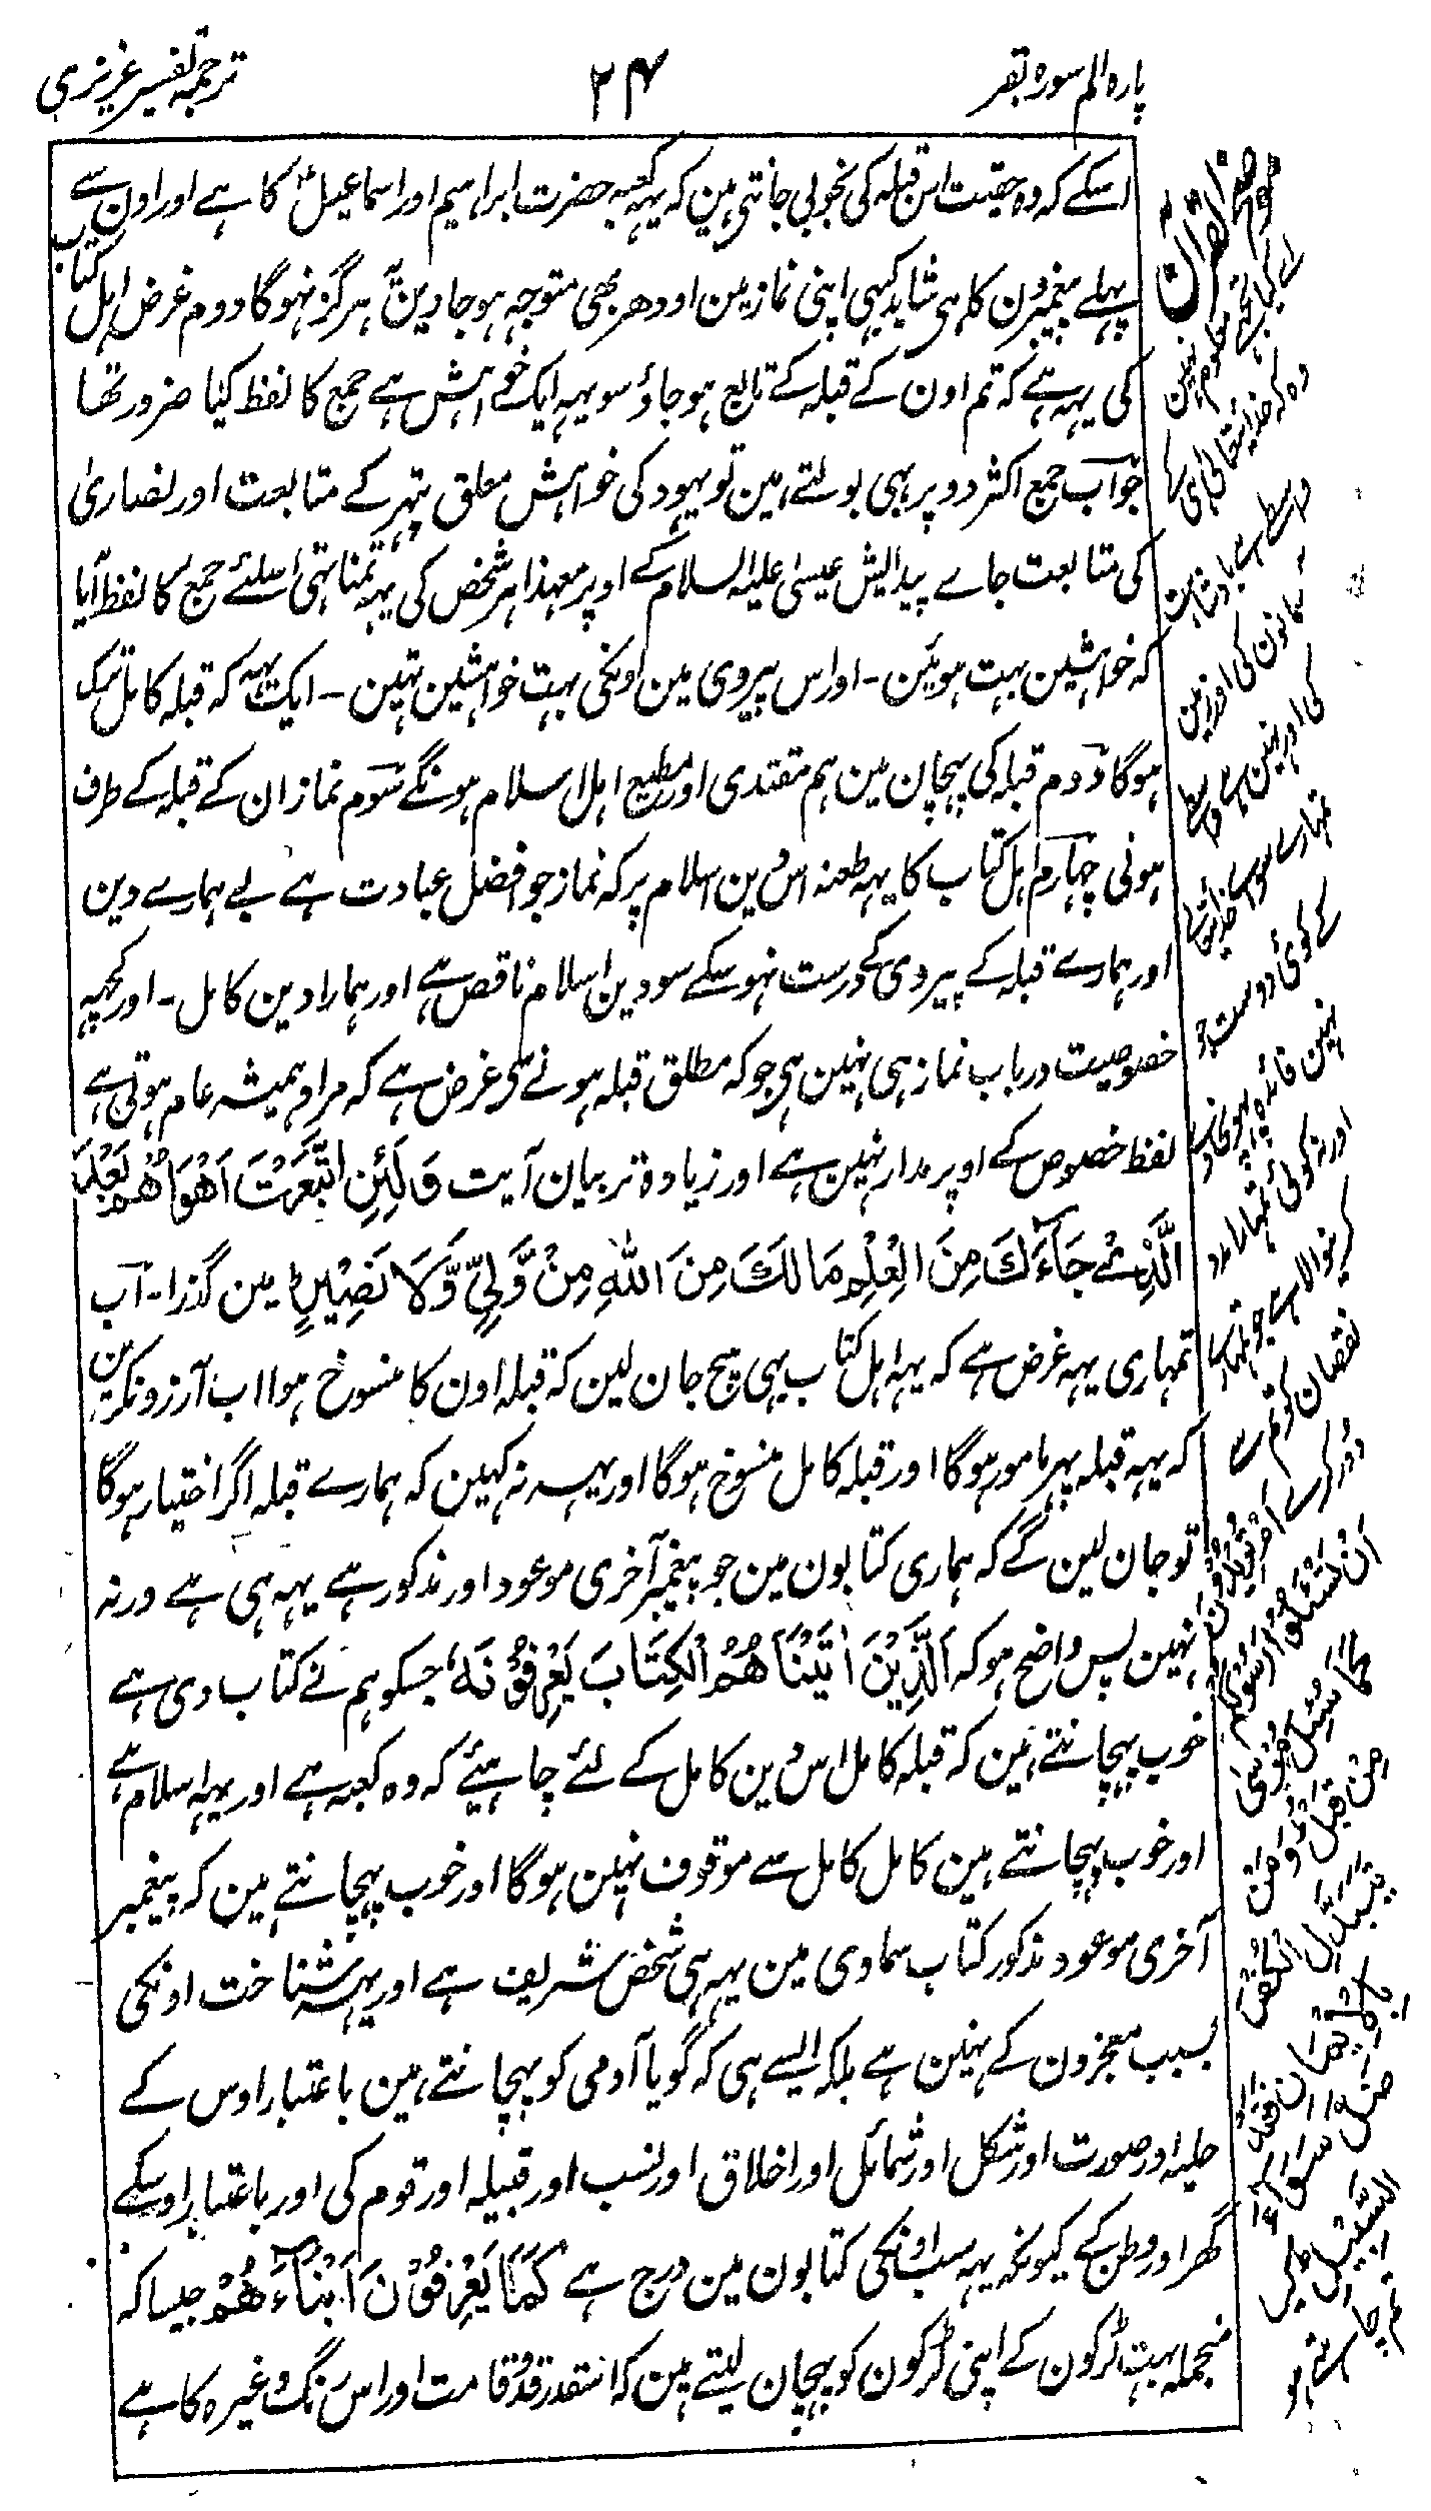 پاره الم سوره بقر
۲۴
ترجمہ تفسیر عزیزی
اسکے کہ وہ حقیت اس قبلہ کی بخوبی جانتی ہین کہ یہہ کعبہ حضرت ابراہیم اور اسماعیلؑ کا ہے اور اون سے
پہلے پیغمبرون کا ہی شاید کبھی اپنی نماز مین اودھر بھی متوجہ ہو جاوین آہ ہرگز نہوگا دوم غرض اہل کتاب
کی یہہ ہے کہ تم اون کے قبلہ کے تابع ہو جاؤ سو یہہ ایک خواہش ہے جمع کا لفظ کیا ضرور تھا
جواب جمع اکثر دو پر بھی بولتے ہین تو یہود کی خواہش معلق پتہر کے متابعت اور نصاریٰ
کی متابعت جاے پیدایش عیسیٰ علیہ السلام کے اوپر معہذا ہر شخص کی یہہ تمنا تہی اسلئے جمع کا لفظ آیا
کہ خواہشین بہت ہوئین - اور اس پیروی مین اونکی بہت خواہشین تہین - ایک یہہ کہ قبلہ کامل ترک
ہوگا دوم قبلہ کی پہچان مین ہم مقتدی اور مطیع اہل اسلام ہونگے سوم نماز ان کے قبلہ کے طرف
ہونی چہارم اہل کتاب کا یہہ طعنہ اس دین اسلام پر کہ نماز جو افضل عبادت ہے بے ہمارے دین
اور ہمارے قبلہ کے پیروی کے درست نہو سکے سو دین اسلام ناقص ہے اور ہمارا دین کامل - اور کچہہ
خصوصیت درباب نماز ہی نہین ہی جو کہ مطلق قبلہ ہونے کی غرض ہے کہ مراد ہمیشہ عام ہوتی ہے
لفظ خصوص کے اوپر مدار نہین ہے اور زیادہ تر بیان آیت وَلَئِنِ اتَّبَعْتَ اَهْوَاءَهُمْ بَعْدَ
الَّذِیْ جَآءَكَ مِنَ الْعِلْمِ مَا لَكَ مِنَ اللّٰهِ مِنْ وَّلِیٍّ وَّلَا نَصِیْرٍ مین گذرا - اب
تمہاری یہہ غرض ہے کہ یہہ اہل کتاب یہی سچ جان لین کہ قبلہ اون کا منسوخ ہوا اب آرزو نکرین
کہ یہہ قبلہ پہر مامور ہوگا اور قبلہ کامل منسوخ ہوگا اور یہہ نہ کہین کہ ہمارے قبلہ اگر اختیار ہوگا
تو جان لین گے کہ ہماری کتابون مین جو پیغمبر آخری موعود اور مذکور ہے یہہ ہی ہے ورنہ
نہین پس واضح ہو کہ اَلَّذِیْنَ اٰتَیْنَاهُمُ الْكِتَابَ یَعْرِفُوْنَهٗ جسکو ہم نے کتاب دی ہے
خوب پہچانتے ہین کہ قبلہ کامل اس دین کامل کے لئے چاہیئے کہ وہ کعبہ ہے اور یہہ اسلام ہے
اور خوب پہچانتے ہین کامل کامل سے موقوف نہین ہوگا اور خوب پہچانتے ہین کہ پیغمبر
آخری موعود مذکور کتاب سماوی مین یہہ ہی شخص شریف ہے اور یہہ شناخت اونکی
بسبب معجزون کے نہین ہے بلکہ ایسے ہی کہ گویا آدمی کو پہچانتے ہین باعتبار اوس کے
حلیہ اور صورت اور شکل اور شمائل اور اخلاق اور نسب اور قبیلہ اور قوم کی اور باعتبار اوسکے
گھر اور وطن کے کیونکہ یہہ سب اونکی کتابون مین درج ہے كَمَا یَعْرِفُوْنَ اَبْنَآءَهُمْ جیسا کہ
منجملہ بہت لڑکون کے اپنی لڑکون کو پہچان لیتے ہین کہ انتقدر قد و قامت اور اس رنگ وغیرہ کا ہے
موضح القرآن
کیا تجھے معلوم نہین
وہ کہ خدایتعالیٰ ہی کا
واسطے ہے بادشاہت
آسمانون کی اور زمین
کی اور نہین ہے واسطے
تمہارے سواے خدایتعالیٰ
کے کوئی دوست جو
تمہین فائدہ پہونچاوے
اور نہ کوئی تمہارا مدد
کرنیوالا ہے جو تمہارے
نقصان کو تم سے
دور کرے اَمْ تُرِیْدُوْنَ
اَنْ تَسْئَلُوْا رَسُوْلَكُمْ
كَمَا سُئِلَ مُوْسٰی
مِنْ قَبْلُ وَمَنْ
یَّتَبَدَّلِ الْكُفْرَ
بِالْاِیْمَانِ فَقَدْ
ضَلَّ سَوَآءَ
السَّبِیْلِ کیا
تم چاہتے ہو